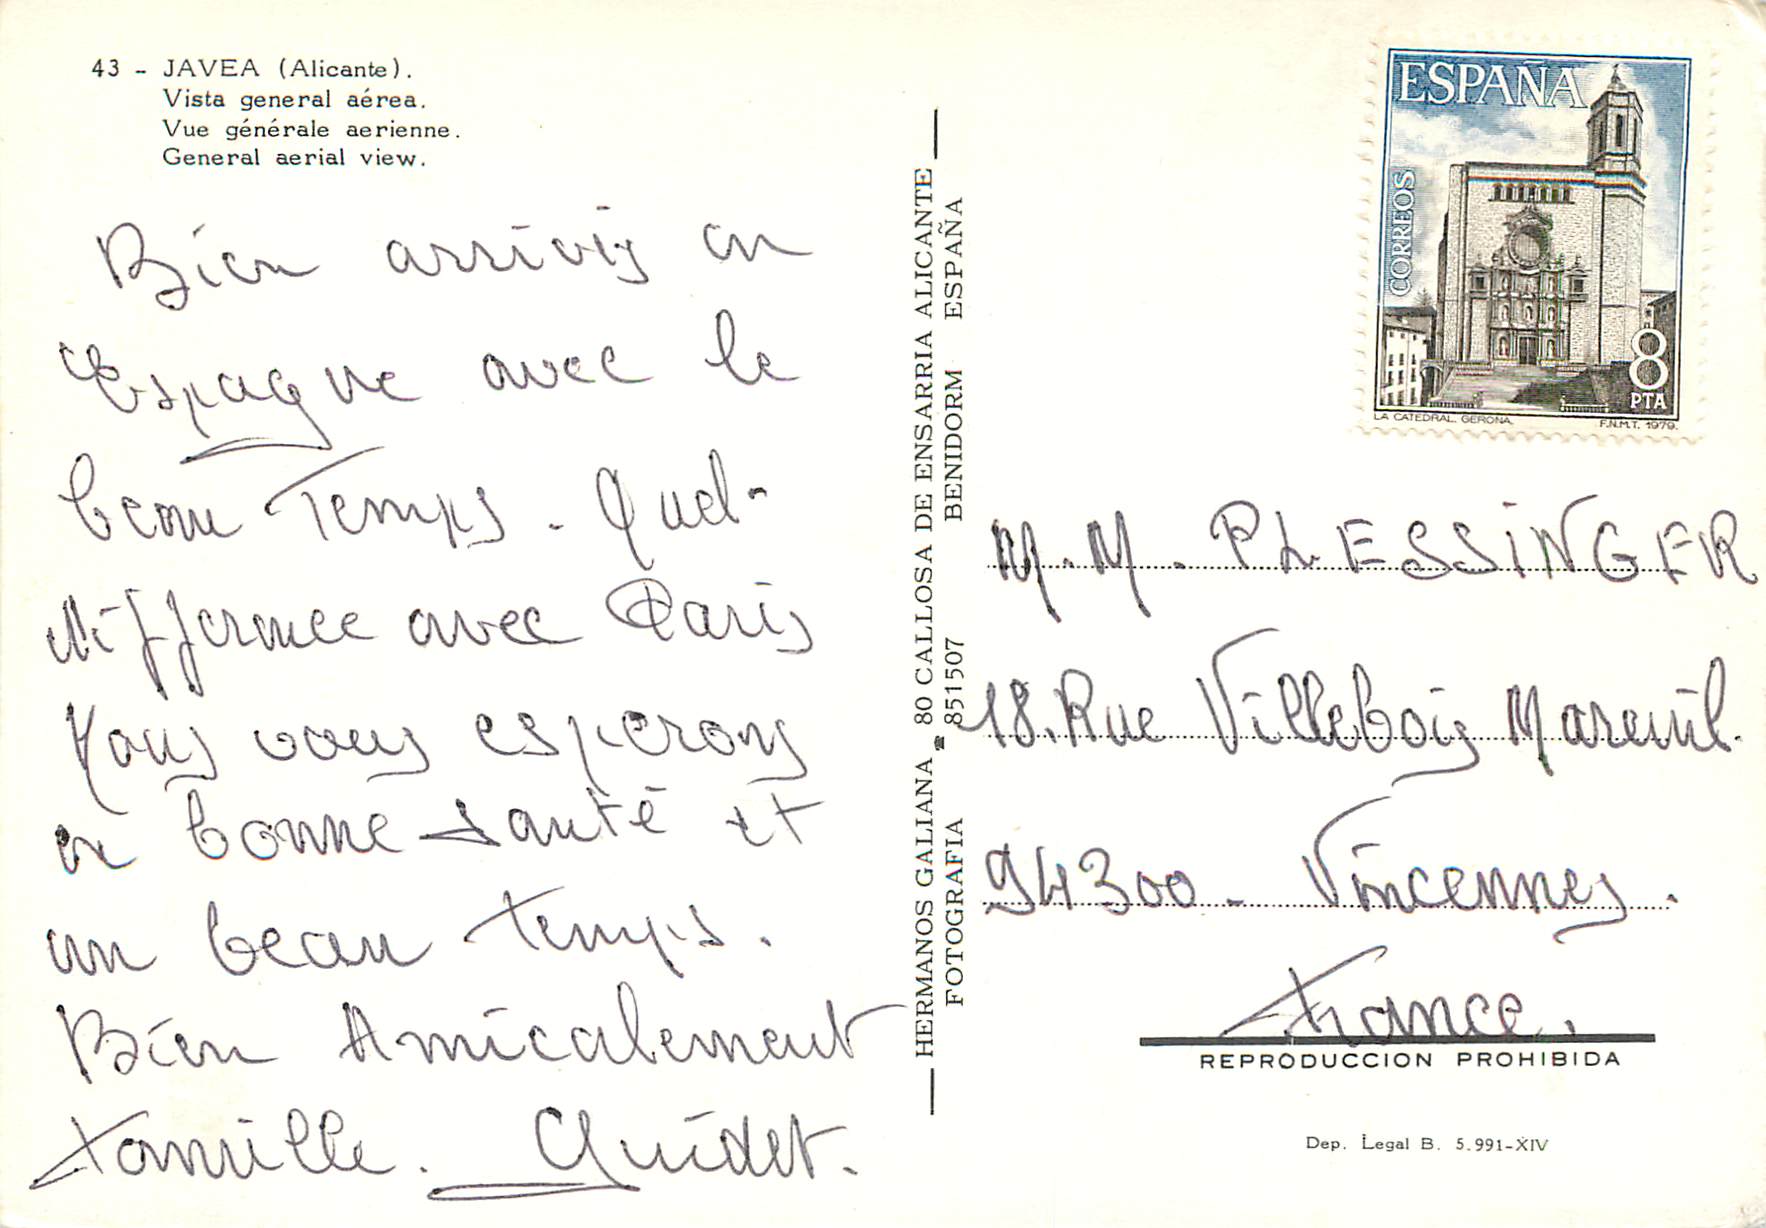 43 - JAVEA (Alicante).
Vista general aérea.
Vue générale aerienne.
General aerial view.
Bien arrivés en
Espagne avec le
beau Temps. Quel-
differance avec Paris
Nous vous esperons
en bonne santé et
un beau temps.
Bien Amicalement
Famille. Guidet.
HERMANOS GALIANA 80 CALLOSA DE ENSARRIA ALICANTE
FOTOGRAFIA ☎ 851507 BENIDORM ESPAÑA
ESPAÑA
CORREOS
8
PTA
LA CATEDRAL. GERONA. F.N.M.T. 1979.
M.M. PLESSINGER
18. Rue Villebois Mareuil.
94300 - Vincennes.
France.
REPRODUCCION PROHIBIDA
Dep. Legal B. 5.991-XIV